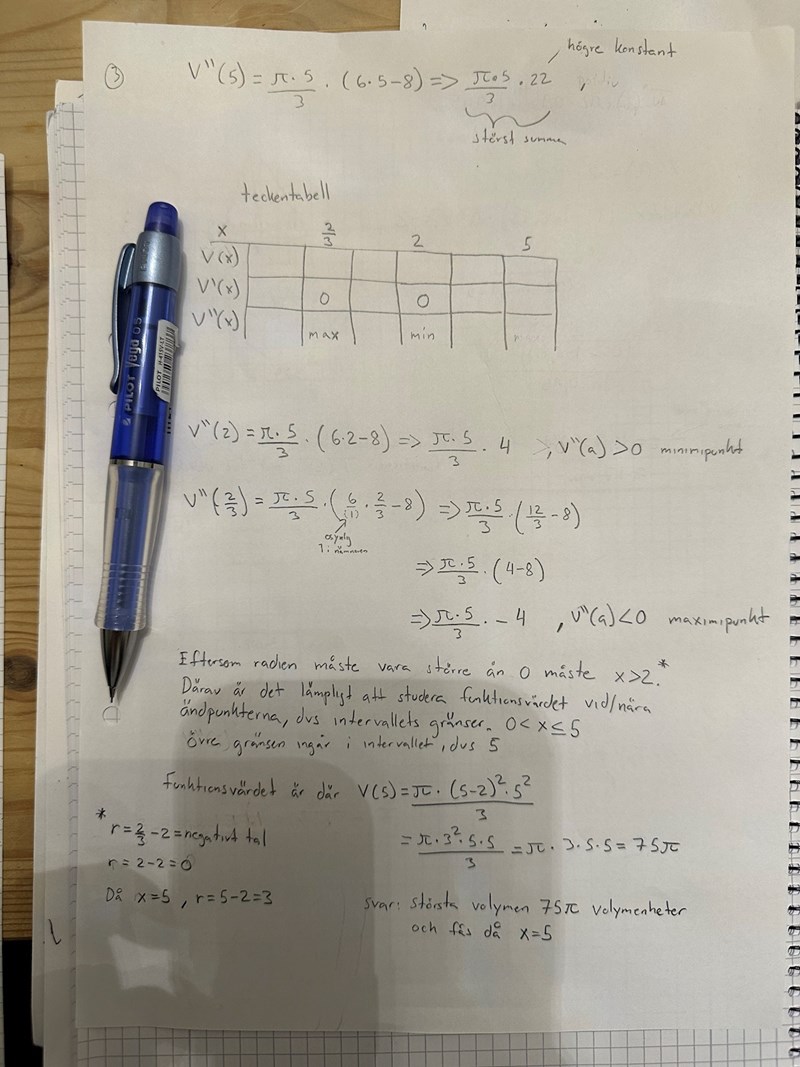 ③ V''(5) = π·5/3 · (6·5-8) => π·5/3 · 22 ,
högre konstant
störst summa
teckentabell
x 2/3 2 5
V(x)
V'(x) 0 0
V''(x) max min
V''(2) = π·5/3 · (6·2-8) => π·5/3 · 4 , V''(a) > 0 minimipunkt
V''(2/3) = π·5/3 · (6/(1) · 2/3 - 8) => π·5/3 · (12/3 - 8)
osynlig
1 i nämnaren
=> π·5/3 · (4-8)
=> π·5/3 · - 4 , V''(a) < 0 maximipunkt
Eftersom radien måste vara större än 0 måste x>2.*
Därav är det lämpligt att studera funktionsvärdet vid/nära
ändpunkterna, dvs intervallets gränser. 0 < x ≤ 5
övre gränsen ingår i intervallet, dvs 5
Funktionsvärdet är där V(5) = π · (5-2)² · 5²/3
= π · 3² · 5 · 5/3 = π · 3 · 5 · 5 = 75π
*
r = 2/3 - 2 = negativt tal
r = 2-2 = 0
Då x=5 , r = 5-2 = 3
svar: största volymen 75π volymenheter
och fås då x=5
PILOT Vega 0.5
PILOT